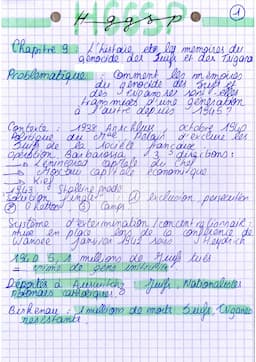 H g g s p
1
Chapitre 9 : L'histoire et les mémoires du
génocide des Juifs et des Tsiganes
Problématique : Comment les mémoires
du génocide des Juifs et
des Tsiganes sont-elles
transmises d'une génération
à l'autre depuis 1945 ?
Contexte : 1938 Anschluss octobre 1940
politique du exclure les
Juifs de la société française
opération Barbarossa 3 directions :
→ Leningrad capitale du
→ Moscou capitale économique
→ Kiev
1943 Stalingrad
Solution finale : ① exclusion persécution
② Ghettos ③ Camps
Système d'extermination / concentrationnaire :
mise en place lors de la conférence de
Wansee janvier 1942 sous Heydrich
5,1 millions de Juifs tués
Déportés à Auschwitz Juifs, Nationalistes
polonais catholiques
Birkenau : 1 millions de morts Juifs, Tsiganes
résistants